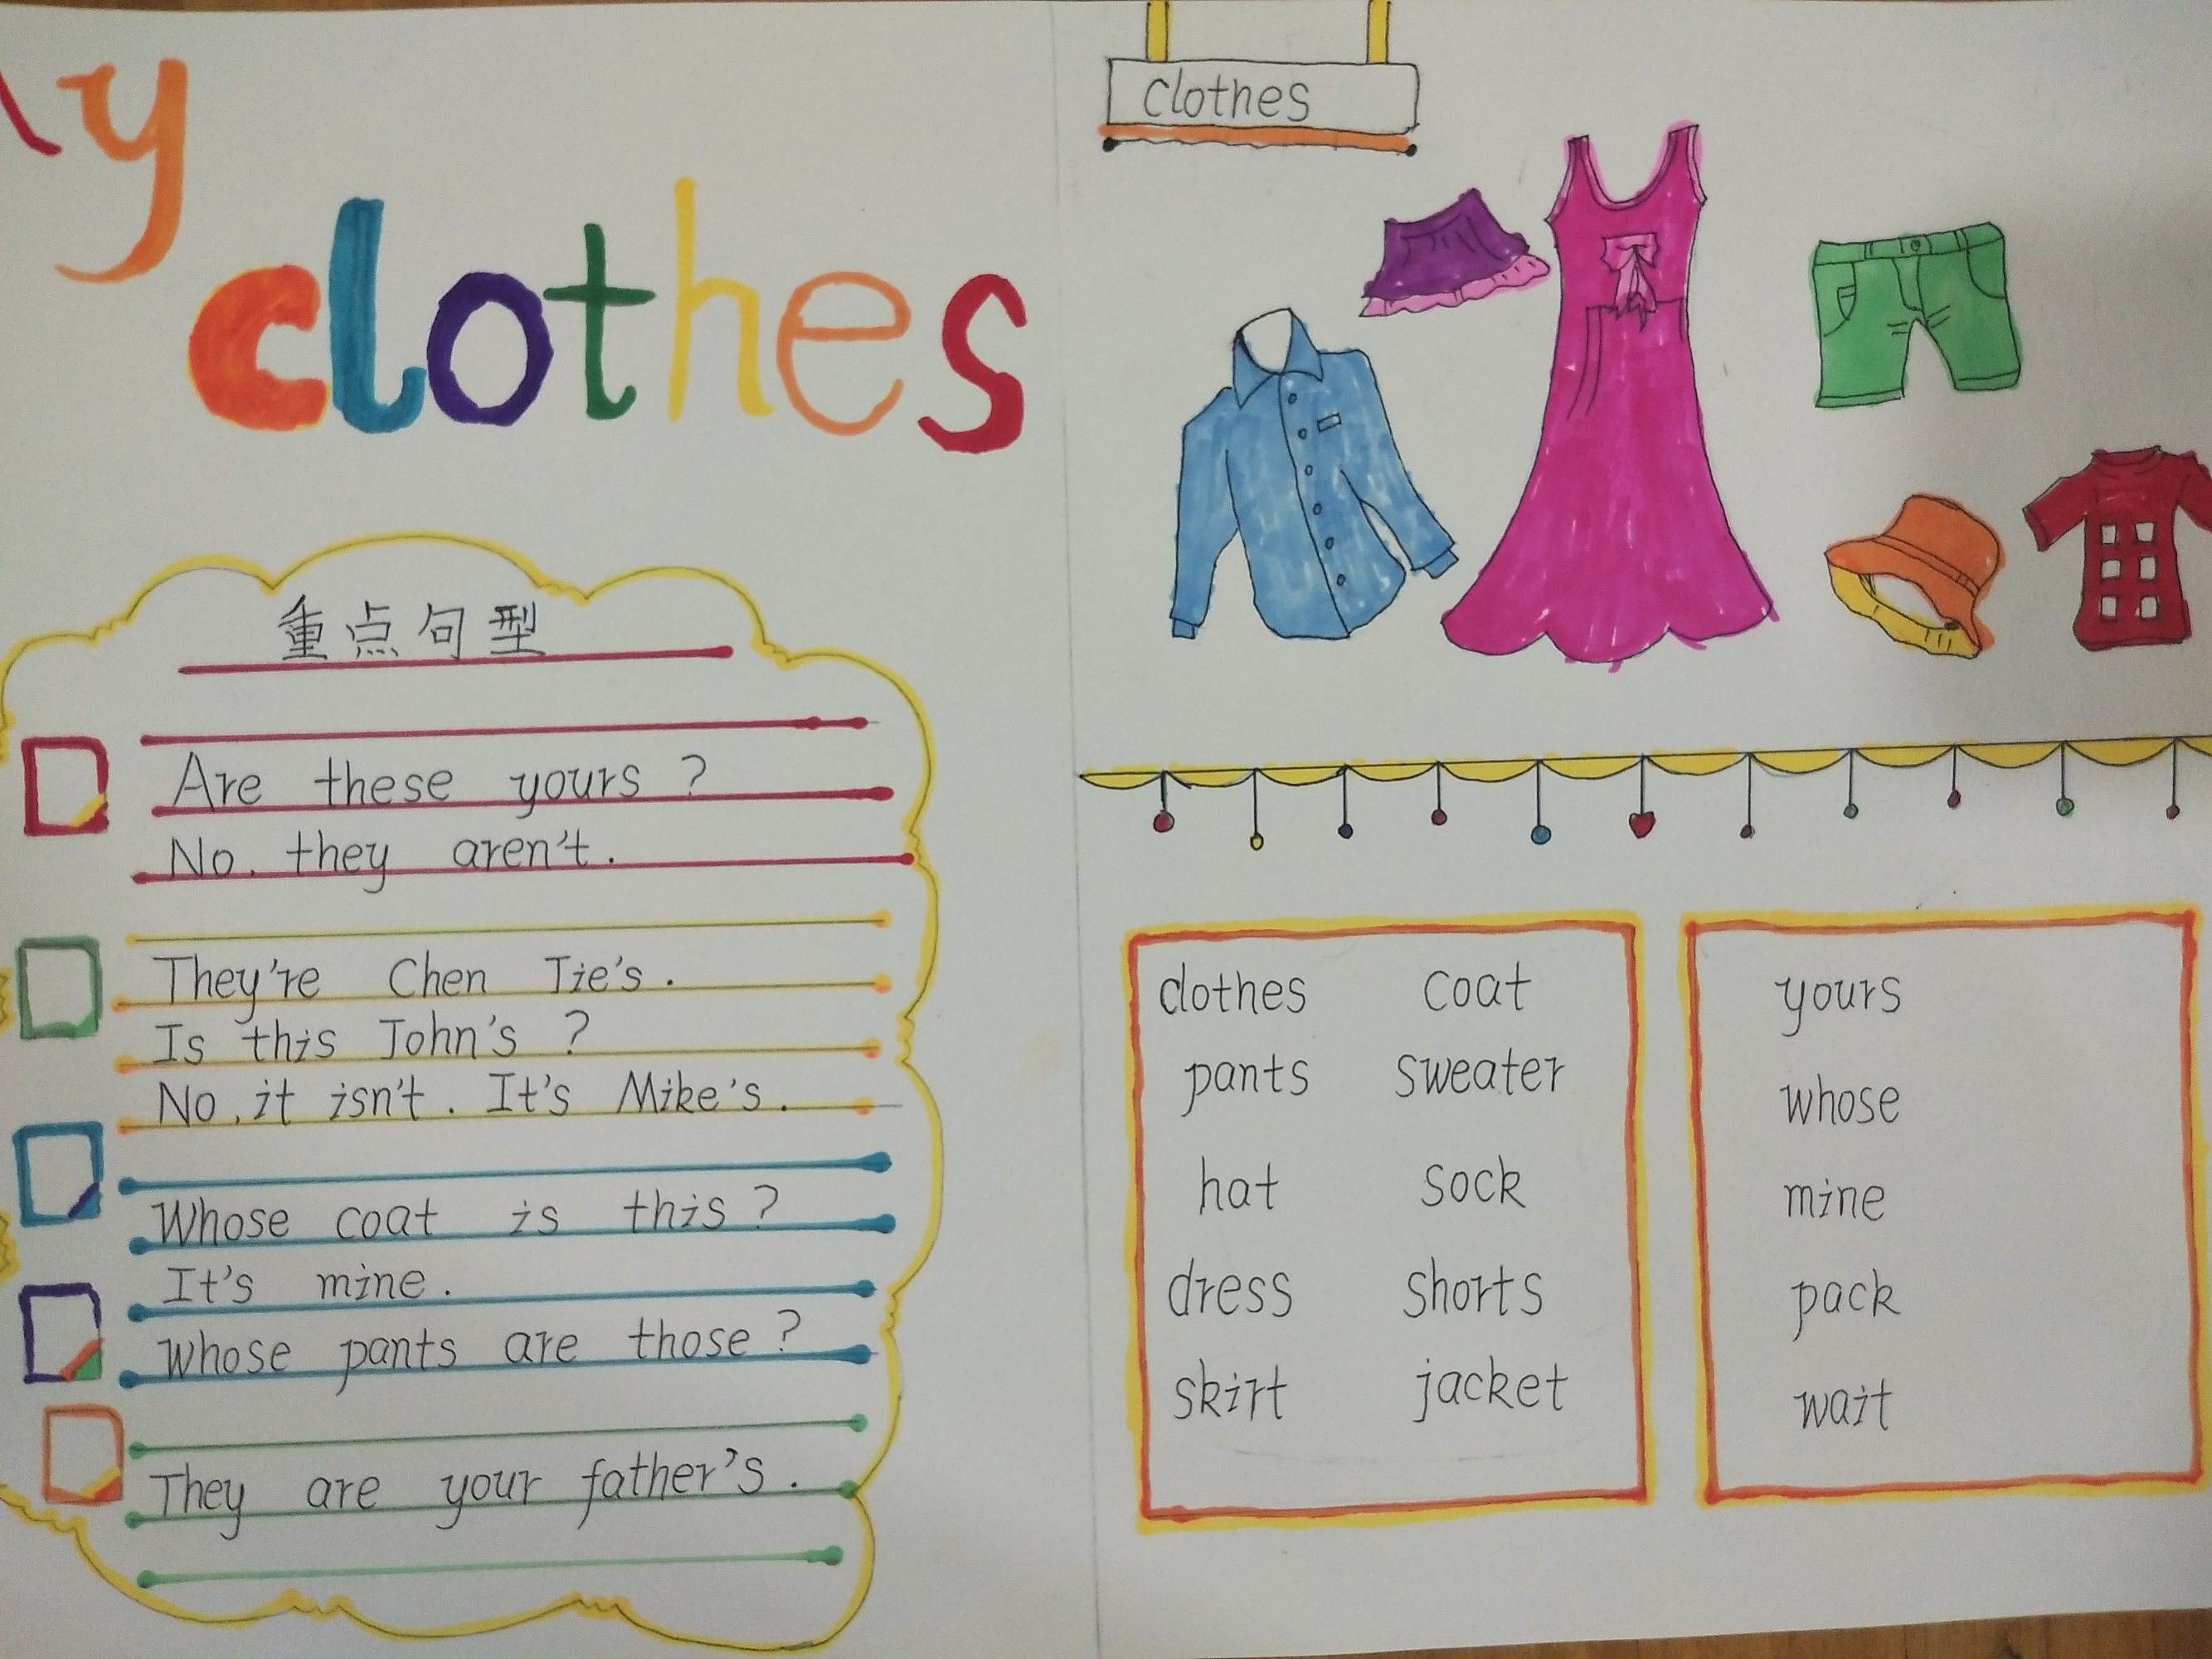 y
clothes
重点句型
Are these yours ?
No, they aren't.
They're Chen Jie's.
Is this John's ?
No, it isn't. It's Mike's.
Whose coat is this ?
It's mine.
Whose pants are those ?
They are your father's.
clothes
clothes coat
pants sweater
hat sock
dress shorts
skirt jacket
yours
whose
mine
pack
wait